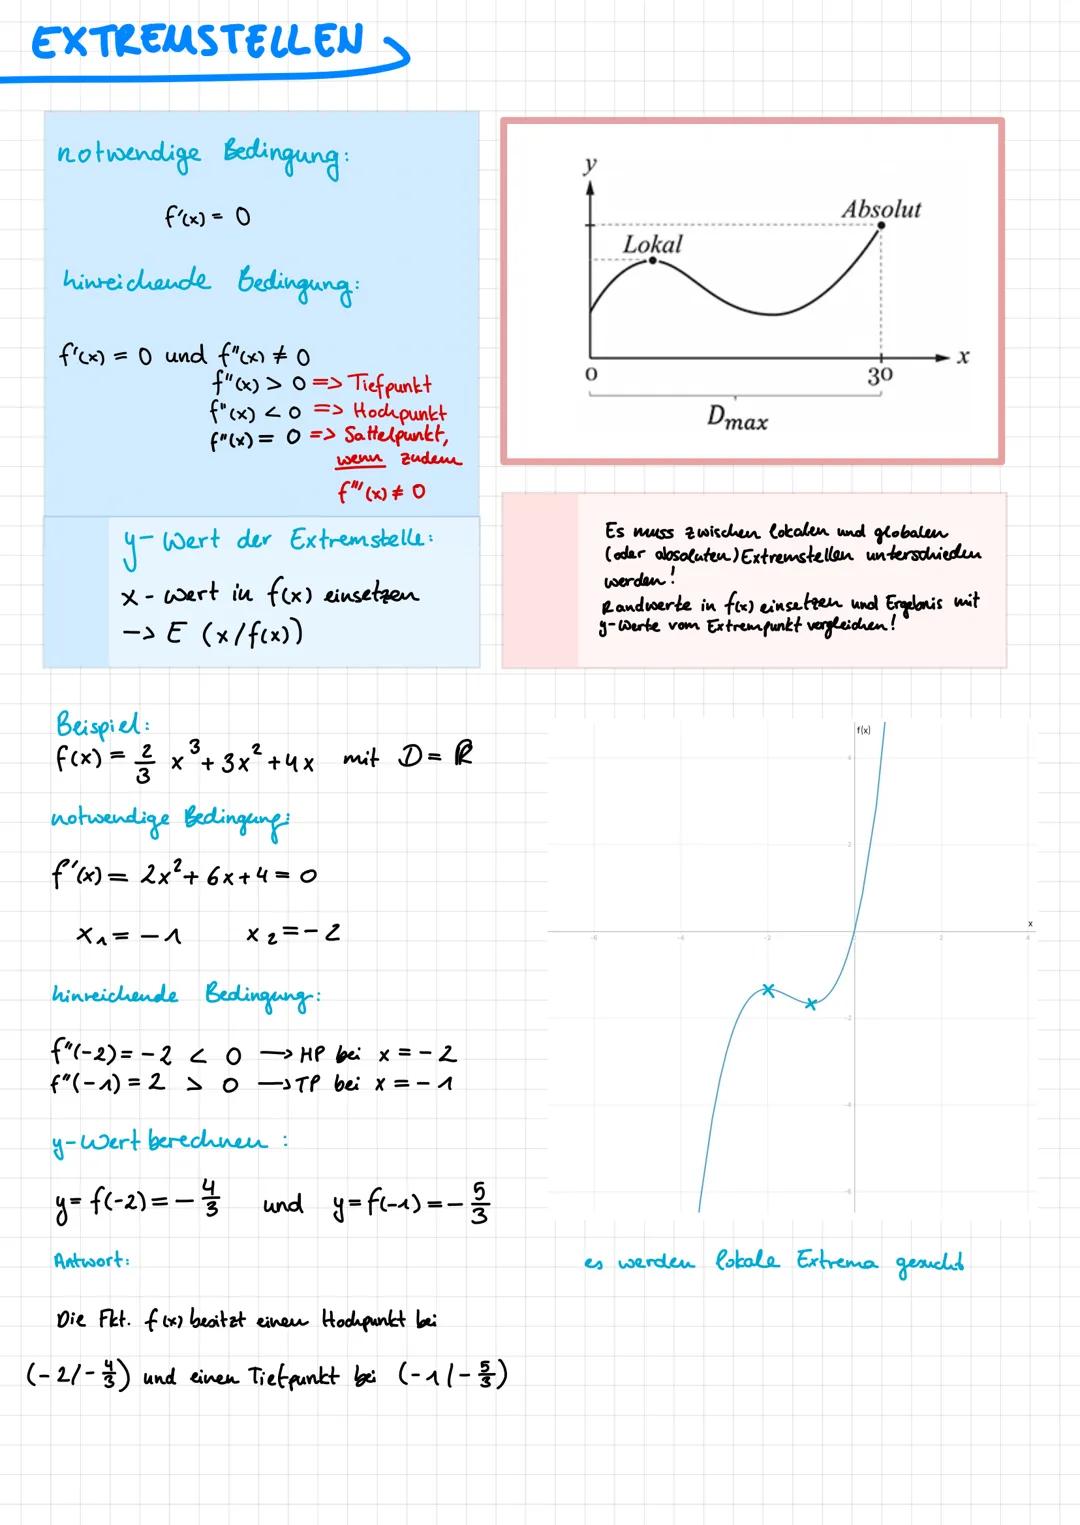 EXTREMSTELLEN
notwendige Bedingung:
f'(x) = 0
hinreichende Bedingung:
f'(x) = 0 und f"(x) ≠ 0
f"(x) > 0 => Tiefpunkt
f"(x) < 0 => Hochpunkt
f"(x) = 0 => Sattelpunkt,
wenn zudem
f'''(x) ≠ 0
y-Wert der Extremstelle:
x-Wert in f(x) einsetzen
-> E (x/f(x))
y
Absolut
Lokal
x
0
30
Dmax
Es muss zwischen lokalen und globalen
(oder absoluten) Extremstellen unterschieden
werden!
Randwerte in f(x) einsetzen und Ergebnis mit
y-Werte vom Extrempunkt vergleichen!
Beispiel:
f(x) = 2/3 x³ + 3x² + 4x mit D = ℝ
notwendige Bedingung:
f'(x) = 2x² + 6x + 4 = 0
x₁ = -1 x₂ = -2
hinreichende Bedingung:
f"(-2) = -2 < 0 -> HP bei x = -2
f"(-1) = 2 > 0 -> TP bei x = -1
y-Wert berechnen:
y = f(-2) = -4/3 und y = f(-1) = -5/3
Antwort:
Die Fkt. f(x) besitzt einen Hochpunkt bei
(-2/-4/3) und einen Tiefpunkt bei (-1/-5/3)
f(x)
4
2
x
-6 -4 -2 2 4
-2
-4
-6
es werden lokale Extrema gesucht